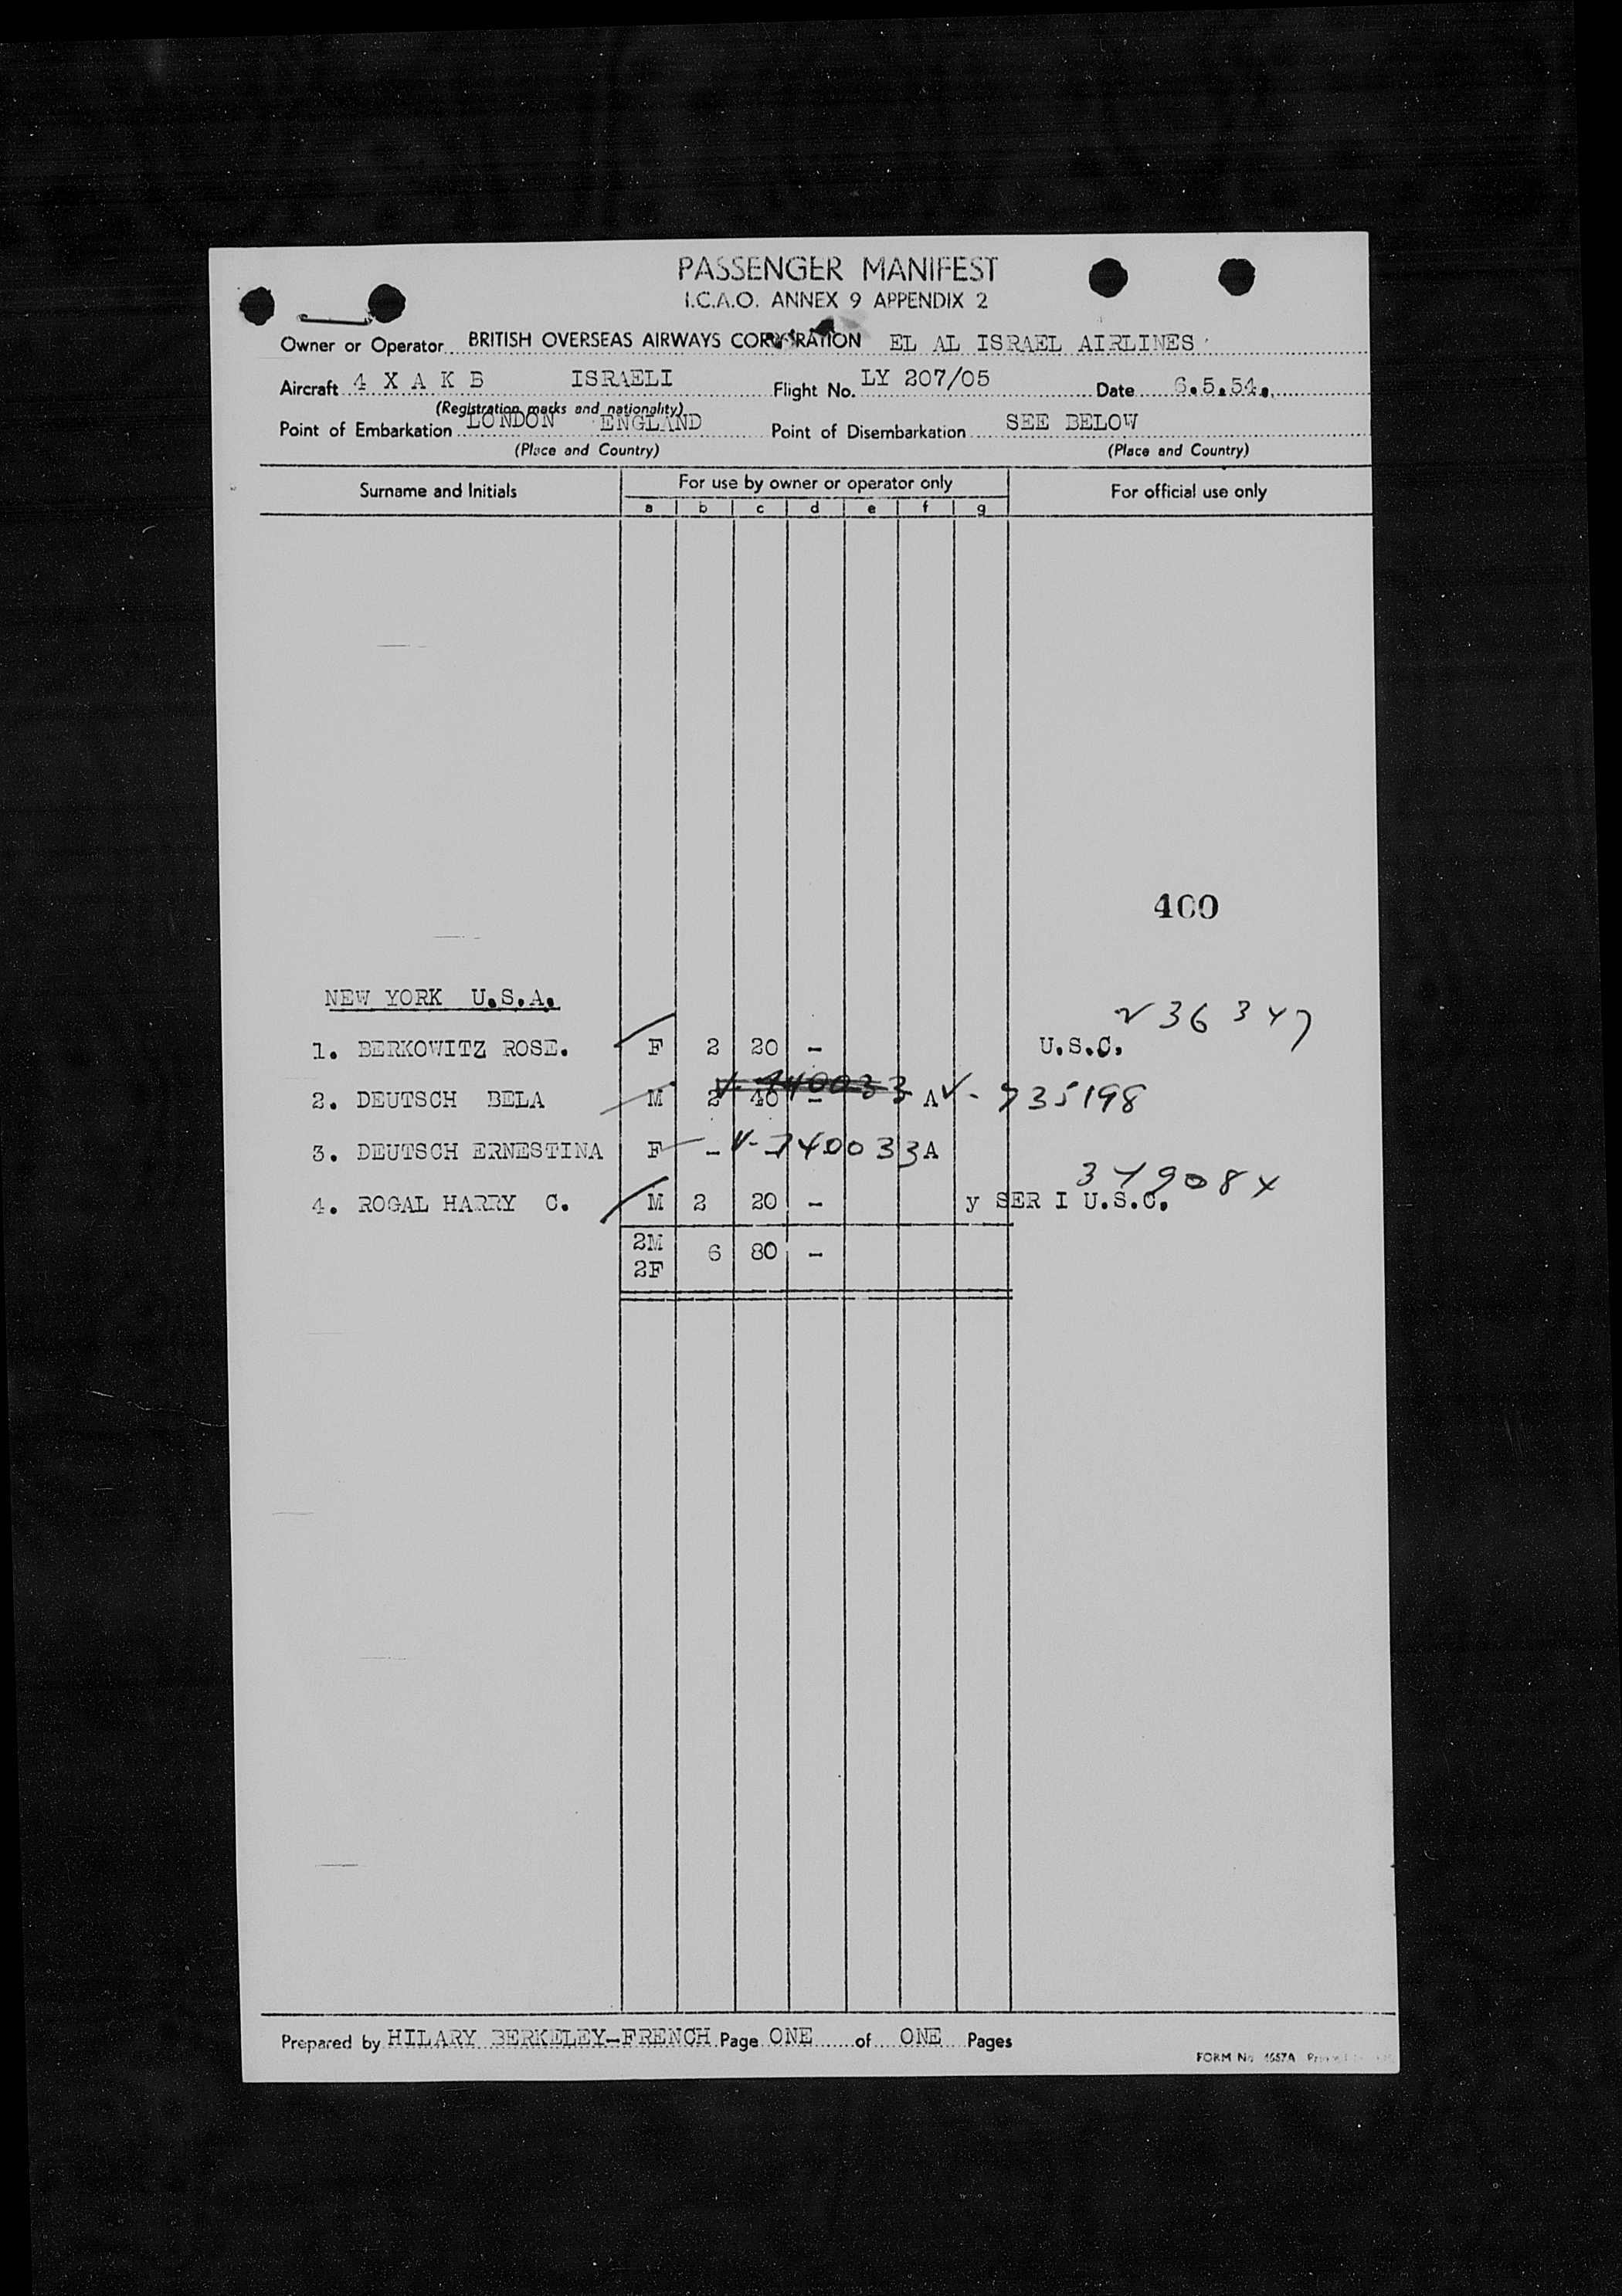 PASSENGER MANIFEST
I.C.A.O. ANNEX 9 APPENDIX 2
Owner or Operator BRITISH OVERSEAS AIRWAYS CORPORATION EL AL ISRAEL AIRLINES
Aircraft 4 X A K B ISRAELI Flight No. LY 207/05 Date 6.5.54.
(Registration marks and nationality)
Point of Embarkation LONDON ENGLAND Point of Disembarkation SEE BELOW
(Place and Country) (Place and Country)
Surname and Initials For use by owner or operator only For official use only
a b c d e f g
400
NEW YORK U.S.A.
V 36 347
1. BERKOWITZ ROSE. F 2 20 - U.S.C.
V-740033
2. DEUTSCH BELA M 2 40 - A V-735198
3. DEUTSCH ERNESTINA F - - V-740033 A
349084
4. ROGAL HARRY C. M 2 20 - y SER I U.S.C.
2M 6 80 -
2F
Prepared by HILARY BERKELEY-FRENCH Page ONE of ONE Pages
FORM No 4557A